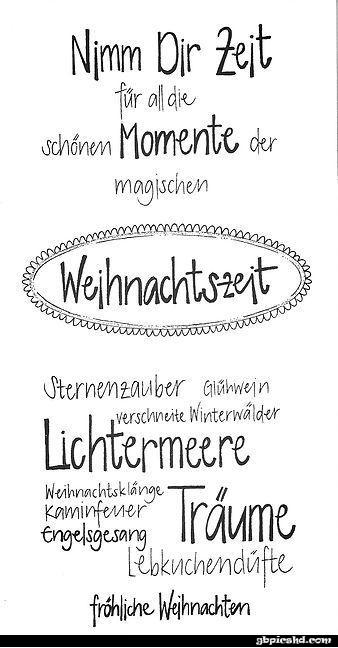 Nimm Dir Zeit
für all die
schönen Momente der
magischen
Weihnachtszeit
Sternenzauber Glühwein
verschneite Winterwälder
Lichtermeere
Weihnachtsklänge
Kaminfeuer Träume
Engelsgesang
Lebkuchendüfte
fröhliche Weihnachten
gbpicshd.com